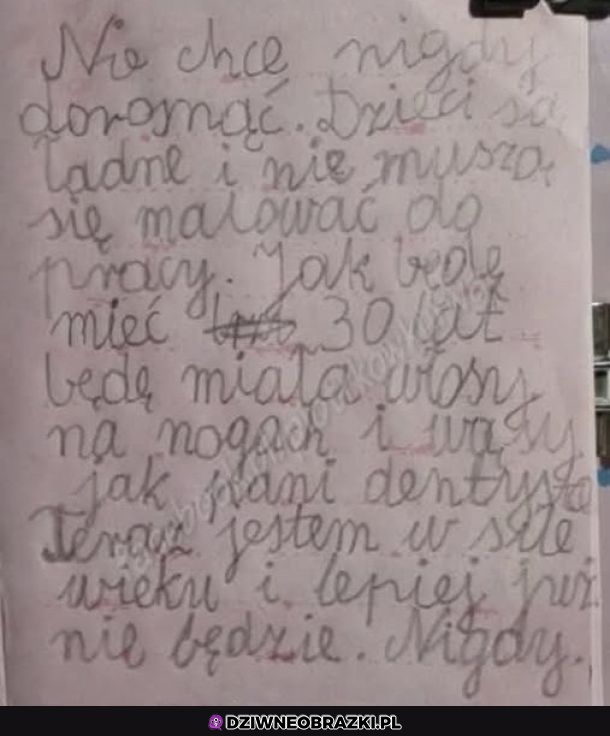 Nie chcę nigdy
dorosnąć. Dzieci są
ładne i nie muszą
się malować do
pracy. Jak będę
mieć 30 lat
będę miała włosy
na nogach i wąsy
jak pani dentysta
Teraz jestem w sile
wieku i lepiej już
nie będzie. Nigdy.
DZIWNEOBRAZKI.PL